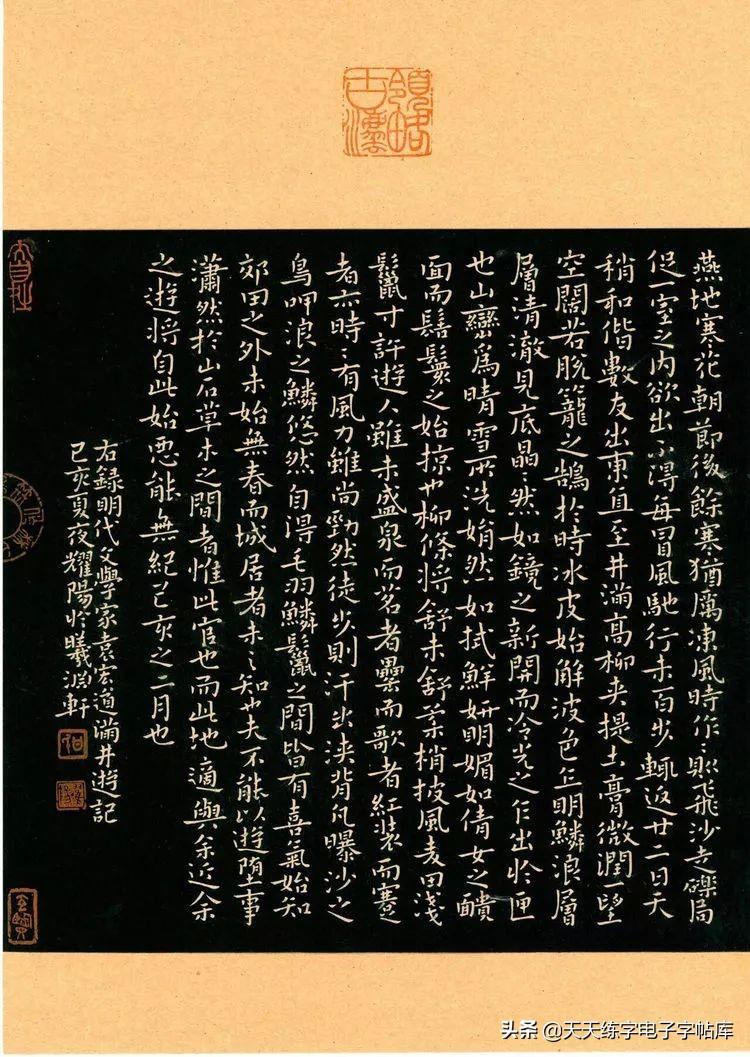 領略古法
燕地寒花朝節後餘寒猶厲凍風時作〻則飛沙走礫局
促一室之内欲出不得每冒風馳行未百步輒返廿二日天
稍和偕數友出東直至井滿高柳夾提土膏微潤一望
空闊若脫籠之鵠於時冰皮始解波色乍明鱗浪層
層清澈見底晶〻然如鏡之新開而冷光之乍出於匣
也山巒為晴雪所洗娟然如拭鮮妍明媚如倩女之靧
面而髻鬟之始掠也柳條將舒未舒柔梢披風麦田淺
鬣寸許遊人雖未盛泉而茗者罍而歌者紅裝而蹇
者亦時〻有風力雖尚勁然徒步則汗出浹背凡曝沙之
鳥呷浪之鱗悠然自得毛羽鱗鬣之間皆有喜氣始知
郊田之外未始無春而城居者未之知也夫不能以遊堕事
瀟然於山石草木之間者惟此官也而此地適與余近余
之遊將自此始惡能無紀己亥之二月也
右録明代文學家袁宏道滿井遊記
己亥夏夜耀陽於曦淵軒
头条 @天天练字电子字帖库